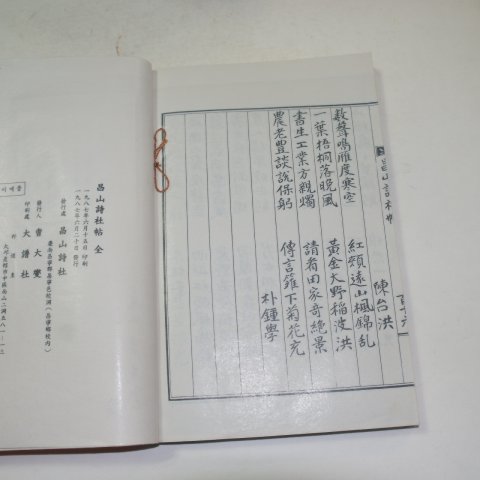 陳台洪
數聲鳴雁度寒空
紅頰遠山楓錦乱
一葉梧桐落晚風
黃金大野稻波洪
書生工業方親燭
請看田家奇絶景
農老豊談說保躬
傳言籬下菊花充
朴鍾學
昌山詩社帖 全
一九八七年六月十五日 印刷
一九八七年六月二十日 發行
發行處 昌山詩社
發行人 曺大燮
印刷處 大譜社